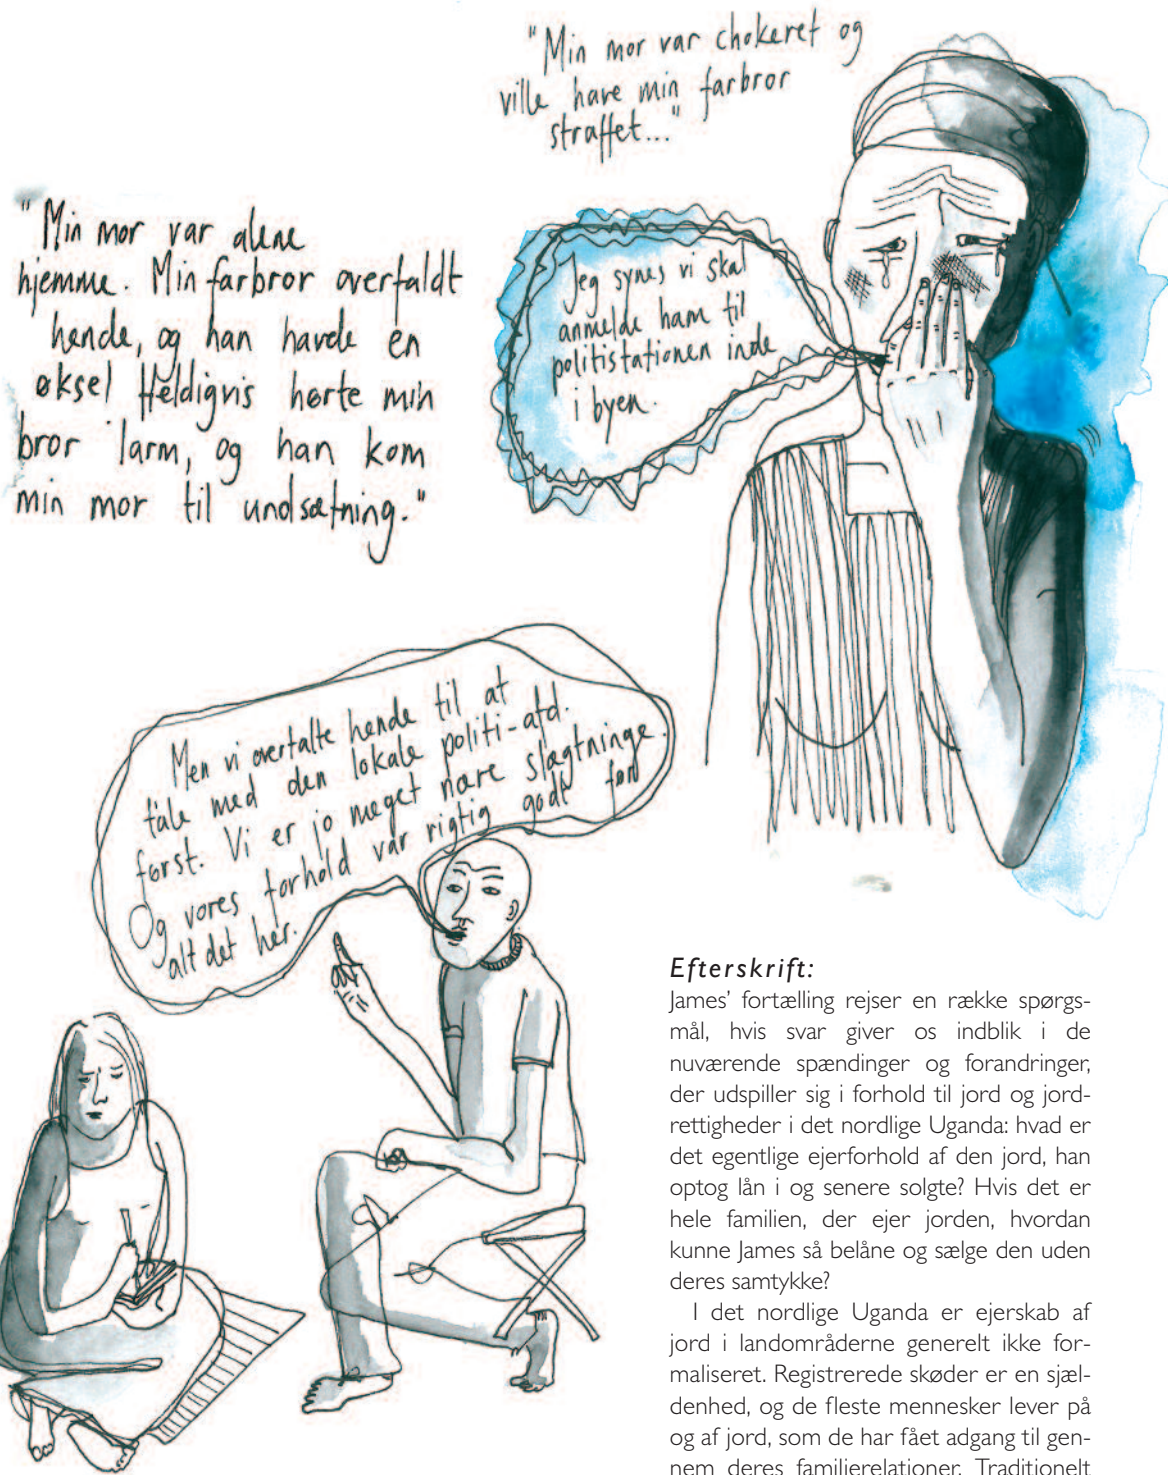 "Min mor var chokeret og
ville have min farbror
straffet..."
"Min mor var alene
hjemme. Min farbror overfaldt
hende, og han havde en
økse! Heldigvis hørte min
bror larm, og han kom
min mor til undsætning."
Jeg synes vi skal
anmelde ham til
politistationen inde
i byen.
Men vi overtalte hende til at
tale med den lokale politi-afd.
først. Vi er jo meget nære slægtninge.
Og vores forhold var rigtig godt før
alt det her.
Efterskrift:
James’ fortælling rejser en række spørgs-
mål, hvis svar giver os indblik i de
nuværende spændinger og forandringer,
der udspiller sig i forhold til jord og jord-
rettigheder i det nordlige Uganda: hvad er
det egentlige ejerforhold af den jord, han
optog lån i og senere solgte? Hvis det er
hele familien, der ejer jorden, hvordan
kunne James så belåne og sælge den uden
deres samtykke?
I det nordlige Uganda er ejerskab af
jord i landområderne generelt ikke for-
maliseret. Registrerede skøder er en sjæl-
denhed, og de fleste mennesker lever på
og af jord, som de har fået adgang til gen-
nem deres familierelationer. Traditionelt